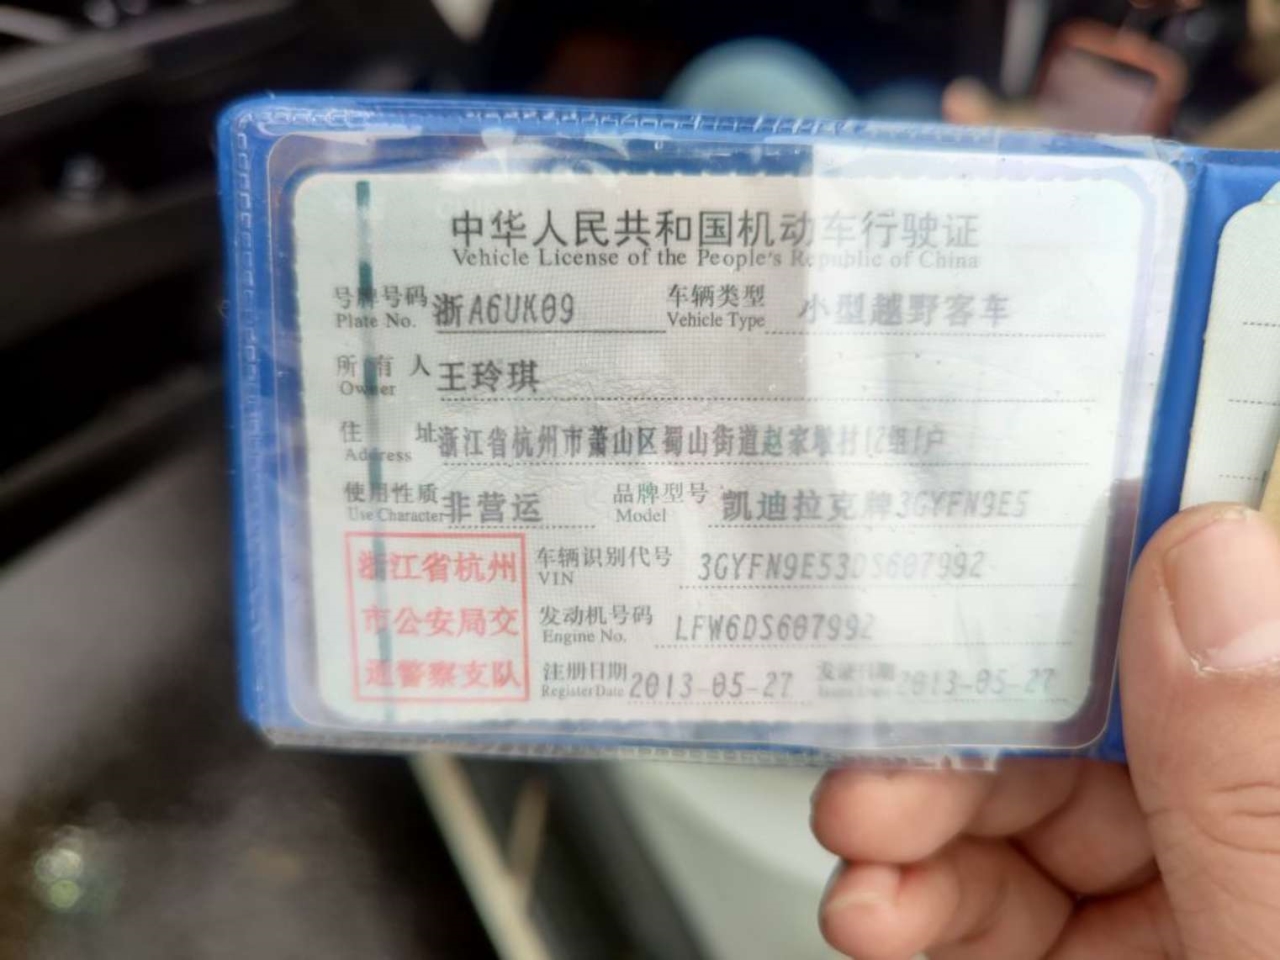 中华人民共和国机动车行驶证
Vehicle License of the People's Republic of China
号牌号码 浙A6UK09 车辆类型 小型越野客车
Plate No. Vehicle Type
所有人 王玲琪
Owner
住址 浙江省杭州市萧山区蜀山街道赵家墩村 户
Address
使用性质 非营运 品牌型号 凯迪拉克牌3GYFN9E5
Use Character Model
浙江省杭州 车辆识别代号 3GYFN9E53DS607992
VIN
市公安局交 发动机号码 LFW6DS607992
Engine No.
通警察支队 注册日期 2013-05-27 发证日期 2013-05-27
Register Date Issue Date